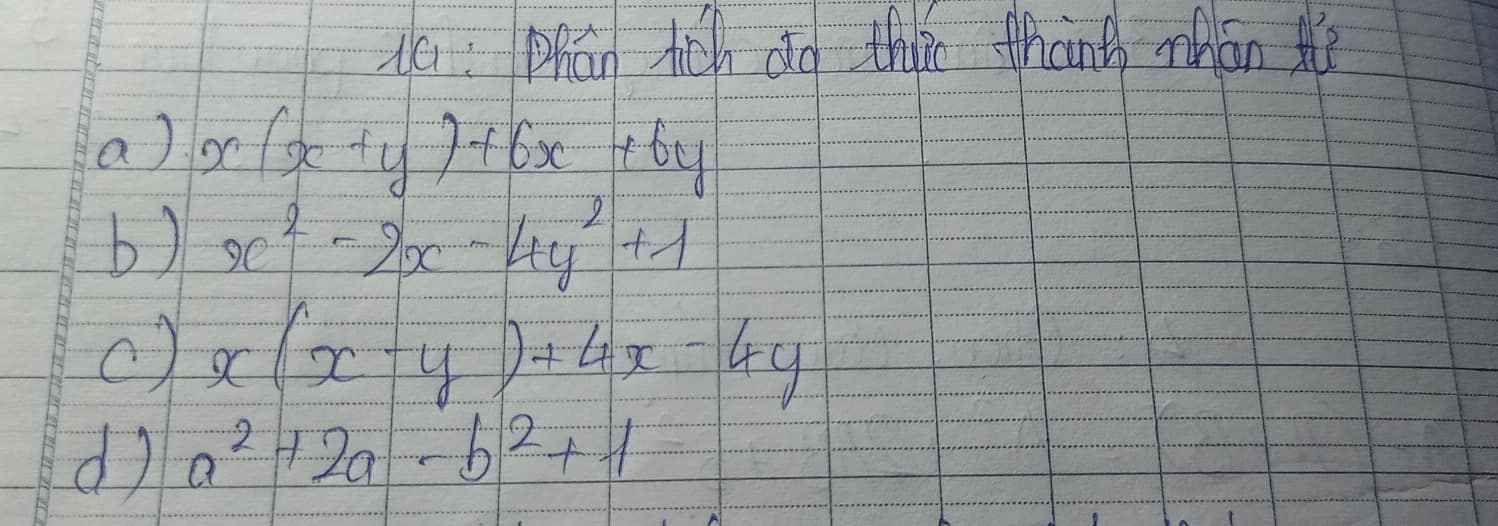 1a: Phân tích đa thức thành nhân tử
a) x(x+y)+6x+6y
b) x² - 2x - 4y² + 1
c) x(x-y)+4x-4y
d) a²+2a-b²+1